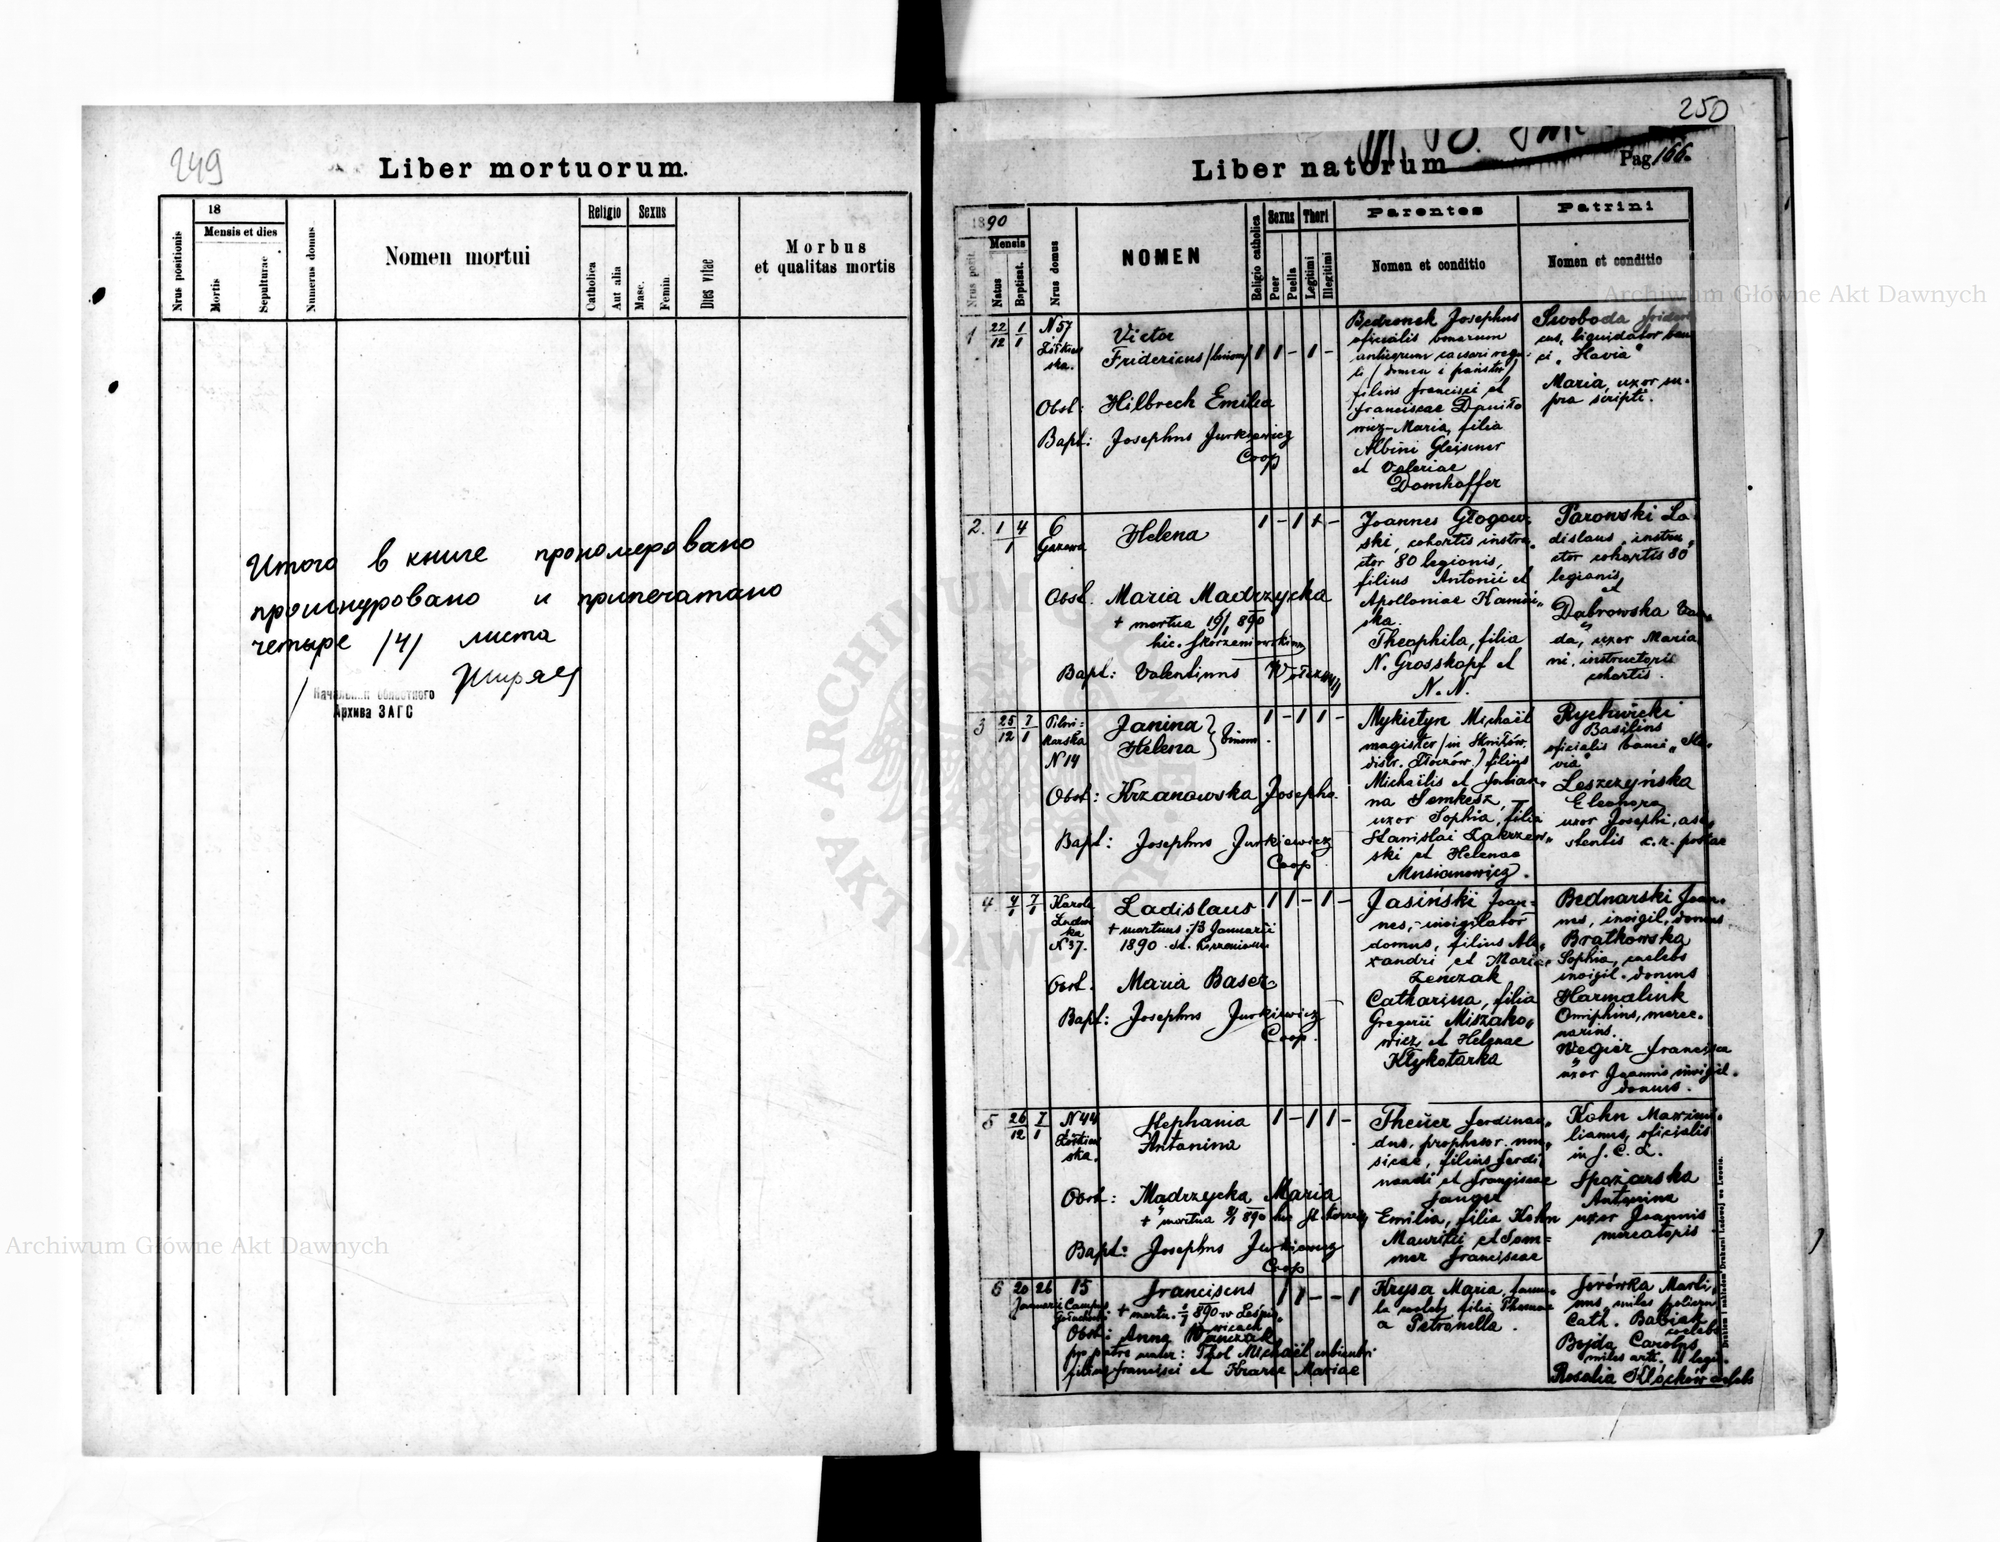 249
Liber mortuorum.
Nrus positionis
18
Mensis et dies
Mortis
Sepulturae
Numerus domus.
Nomen mortui
Religio
Catholica
Aut alia
Sexus
Masc.
Femin.
Dies vitae
Morbus
et qualitas mortis
Итого в книге пронумеровано
прошнуровано и припечатано
четыре /4/ листа
Начальник областного
Архива ЗАГС
250
Liber natorum
Pag 166.
1890
Mensis
Nrus posit.
Natus
Baptisat.
Nrus domus
NOMEN
Religio catholica
Sexus
Puer
Puella
Thori
Legitimi
Illegitimi
Parentes
Nomen et conditio
Patrini
Nomen et conditio
1 22/12 1/1 N 57
Victor
Fridericus /binom/ 1 1 - 1 -
Obst: Hilbrech Emilia
Bapt: Josephus Jurkiewicz
Coop
Bedronek Josephus
officialis bonorum
filius Francisci et
Franciscae Daniło
wicz-Maria, filia
Albini Gleisner
et Valeriae
Domhoffer
Swoboda
cus, liquidator ban
ci "Slavia"
Maria, uxor su-
pra scripti.
2. 1 4 / 1 6
Helena 1 - 1 + -
Obst. Maria Madrzycka
+ mortua 19/1 890
Bapt: Valentinus
Joannes Głogow-
ski, cohortis instru-
ctor 80 legionis,
filius Antonii et
Apolloniae Kamiń-
ska.
Theophila, filia
N. Grosskopf et
N. N.
Parowski La-
dislaus, instru-
ctor cohortis 80
legionis
et
Dąbrowska Wan-
da, uxor Maria
ni, instructoris
cohortis.
3 25/12 7/1
N 14
Janina
Helena } binom. 1 - 1 1 -
Obst: Krzanowska Josepha
Bapt: Josephus Jurkiewicz
Coop
Mykietyn Michaël
magister /in
distr. Złoczów/ filius
Michaëlis et Julian-
na Semkesz,
uxor Sophia, filia
Stanislai Zakrzew-
ski et Helenae
Musianowicz.
Rychwicki
Basilius
officialis banci "Sla-
via"
Leszczyńska
Eleonora
uxor Josephi, assi-
stentis c. r. postae
4 4/1 7/1 Karola
Ludwi
ka
N 37.
Ladislaus 1 1 - 1 -
+ mortuus 13 Januarii
1890
Obst. Maria Baser
Bapt: Josephus Jurkiewicz
Coop.
Jasiński Joan-
nes, invigilator
domus, filius Ale-
xandri et Maria
Zenczak
Catharina, filia
Gregorii Miszako-
wicz et Helenae
Kłykotarka
Bednarski Joan-
nes, invigil. domus
Bratkowska
Sophia, caelebs
invigil. domus
Harmalink
Onuphrius, merce-
narius.
Węgier Francisca
uxor Joannis invigil.
domus.
5 26/12 7/1 N 44
Stephania 1 - 1 1 -
Antonina
Obst: Mądrzycka Maria
Bapt: Josephus Jurkiewicz
Coop
Theuer Ferdinan-
dus, prophesor mu-
sicae, filius Ferdi
nandi et Franciscae
Emilia, filia Kohn
Mauritii et Som-
mer Franciscae
Kohn Maximi-
lianus, oficialis
in J. C. L.
Spożarska
Antonina
uxor Joannis
mercatoris
6 20 26 15
Januarii Campus
Franciscus 1 1 - - 1
Obst: Anna Wańczak
filius Francisci et Mariae
Krysa Maria, famu-
la caelebs filia Thomae
a Petronella.
Jerówka Marti-
nus, miles
Cath. Babiak
caelebs
Bojda Carolus
miles arti. 11 legi.
Rosalia
Archiwum Główne Akt Dawnych
Archiwum Główne Akt Dawnych
ARCHIWUM GŁÓWNE AKT DAWNYCH